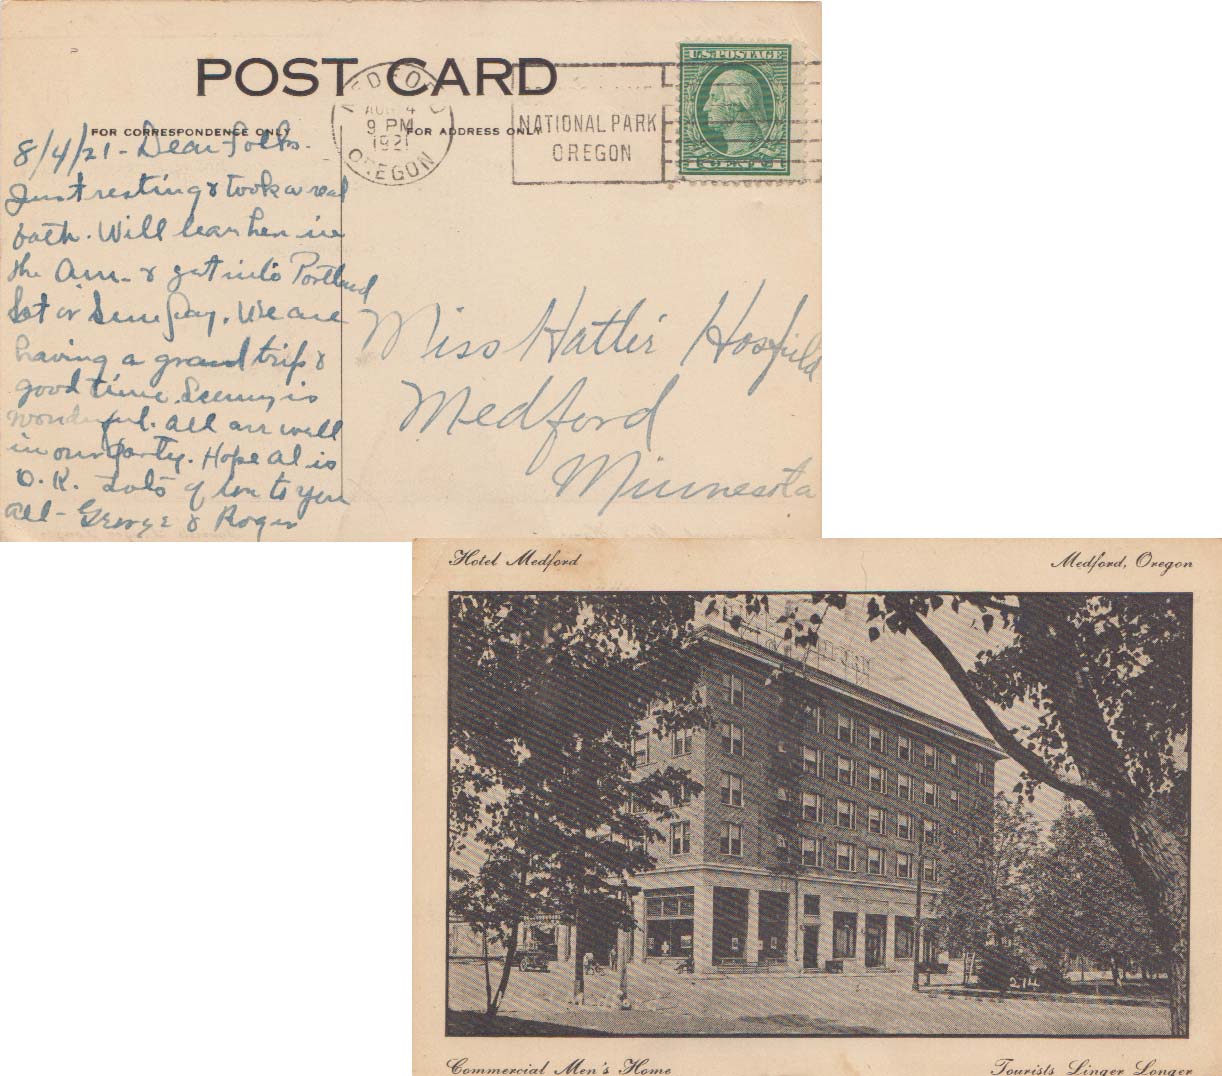 POST CARD
FOR CORRESPONDENCE ONLY
FOR ADDRESS ONLY
MEDFORD
AUG 4
9 PM
1921
OREGON
NATIONAL PARK
OREGON
U.S. POSTAGE
1 CENT 1
8/4/21 - Dear folks.
Just resting & took a real
bath. Will leave here in
the Am. & get into Portland
Sat or Sunday. We are
having a grand trip &
good time. Scenery is
wonderful. All are well
in our party. Hope Al is
O.K. Lots of love to you
all - George & Roger
Miss Hattie Hosfield
Medford
Minnesota
Hotel Medford
Medford, Oregon
214
Commercial Men's Home
Tourists Linger Longer